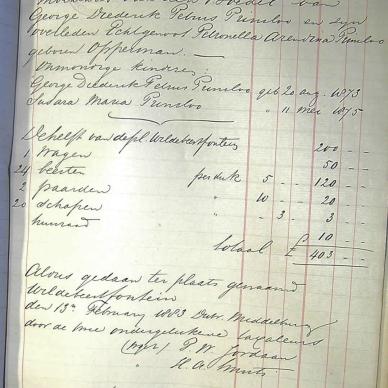 van den Boedel van
George Diederik Petrus Prinsloo en zyn
overleden Echtgenoot Petronella Arendina Prinsloo
geboren Opperman.
Onmondige kinderen
George Diederik Petrus Prinsloo geb 20 aug. 1873
Susara Maria Prinsloo " 11 Mei 1875
De helft van de pl. Wildebeestfontein 200 - -
1 Wagen 50 - -
24 beesten per stuk 5 - - 120 - -
2 paarden " 10 - - 20 - -
20 schapen " - 3 - 3 - -
huisraad 10 - -
Totaal £ 403 - -
Aldus gedaan ter plaats genaamd
Wildebeestfontein
den 13th February 1883 Distr. Middelburg
door de twee ondergetekende taxateurs
P. W. Jordaan